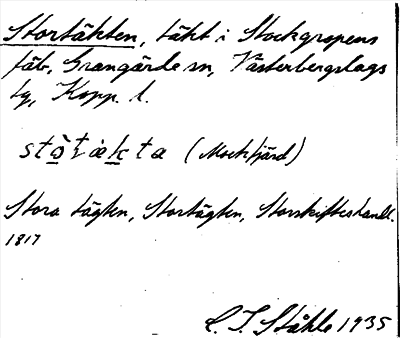 Stortäkten, täkt i Stockgropens
fäb, Grangärde sn, Västerbergslags
tg, Kopp. l.
stò̱täḵta (Mockfjärd)
Stora tägten, Stortägten, Storskifteshandl.
1817
C. I. Ståhle 1935